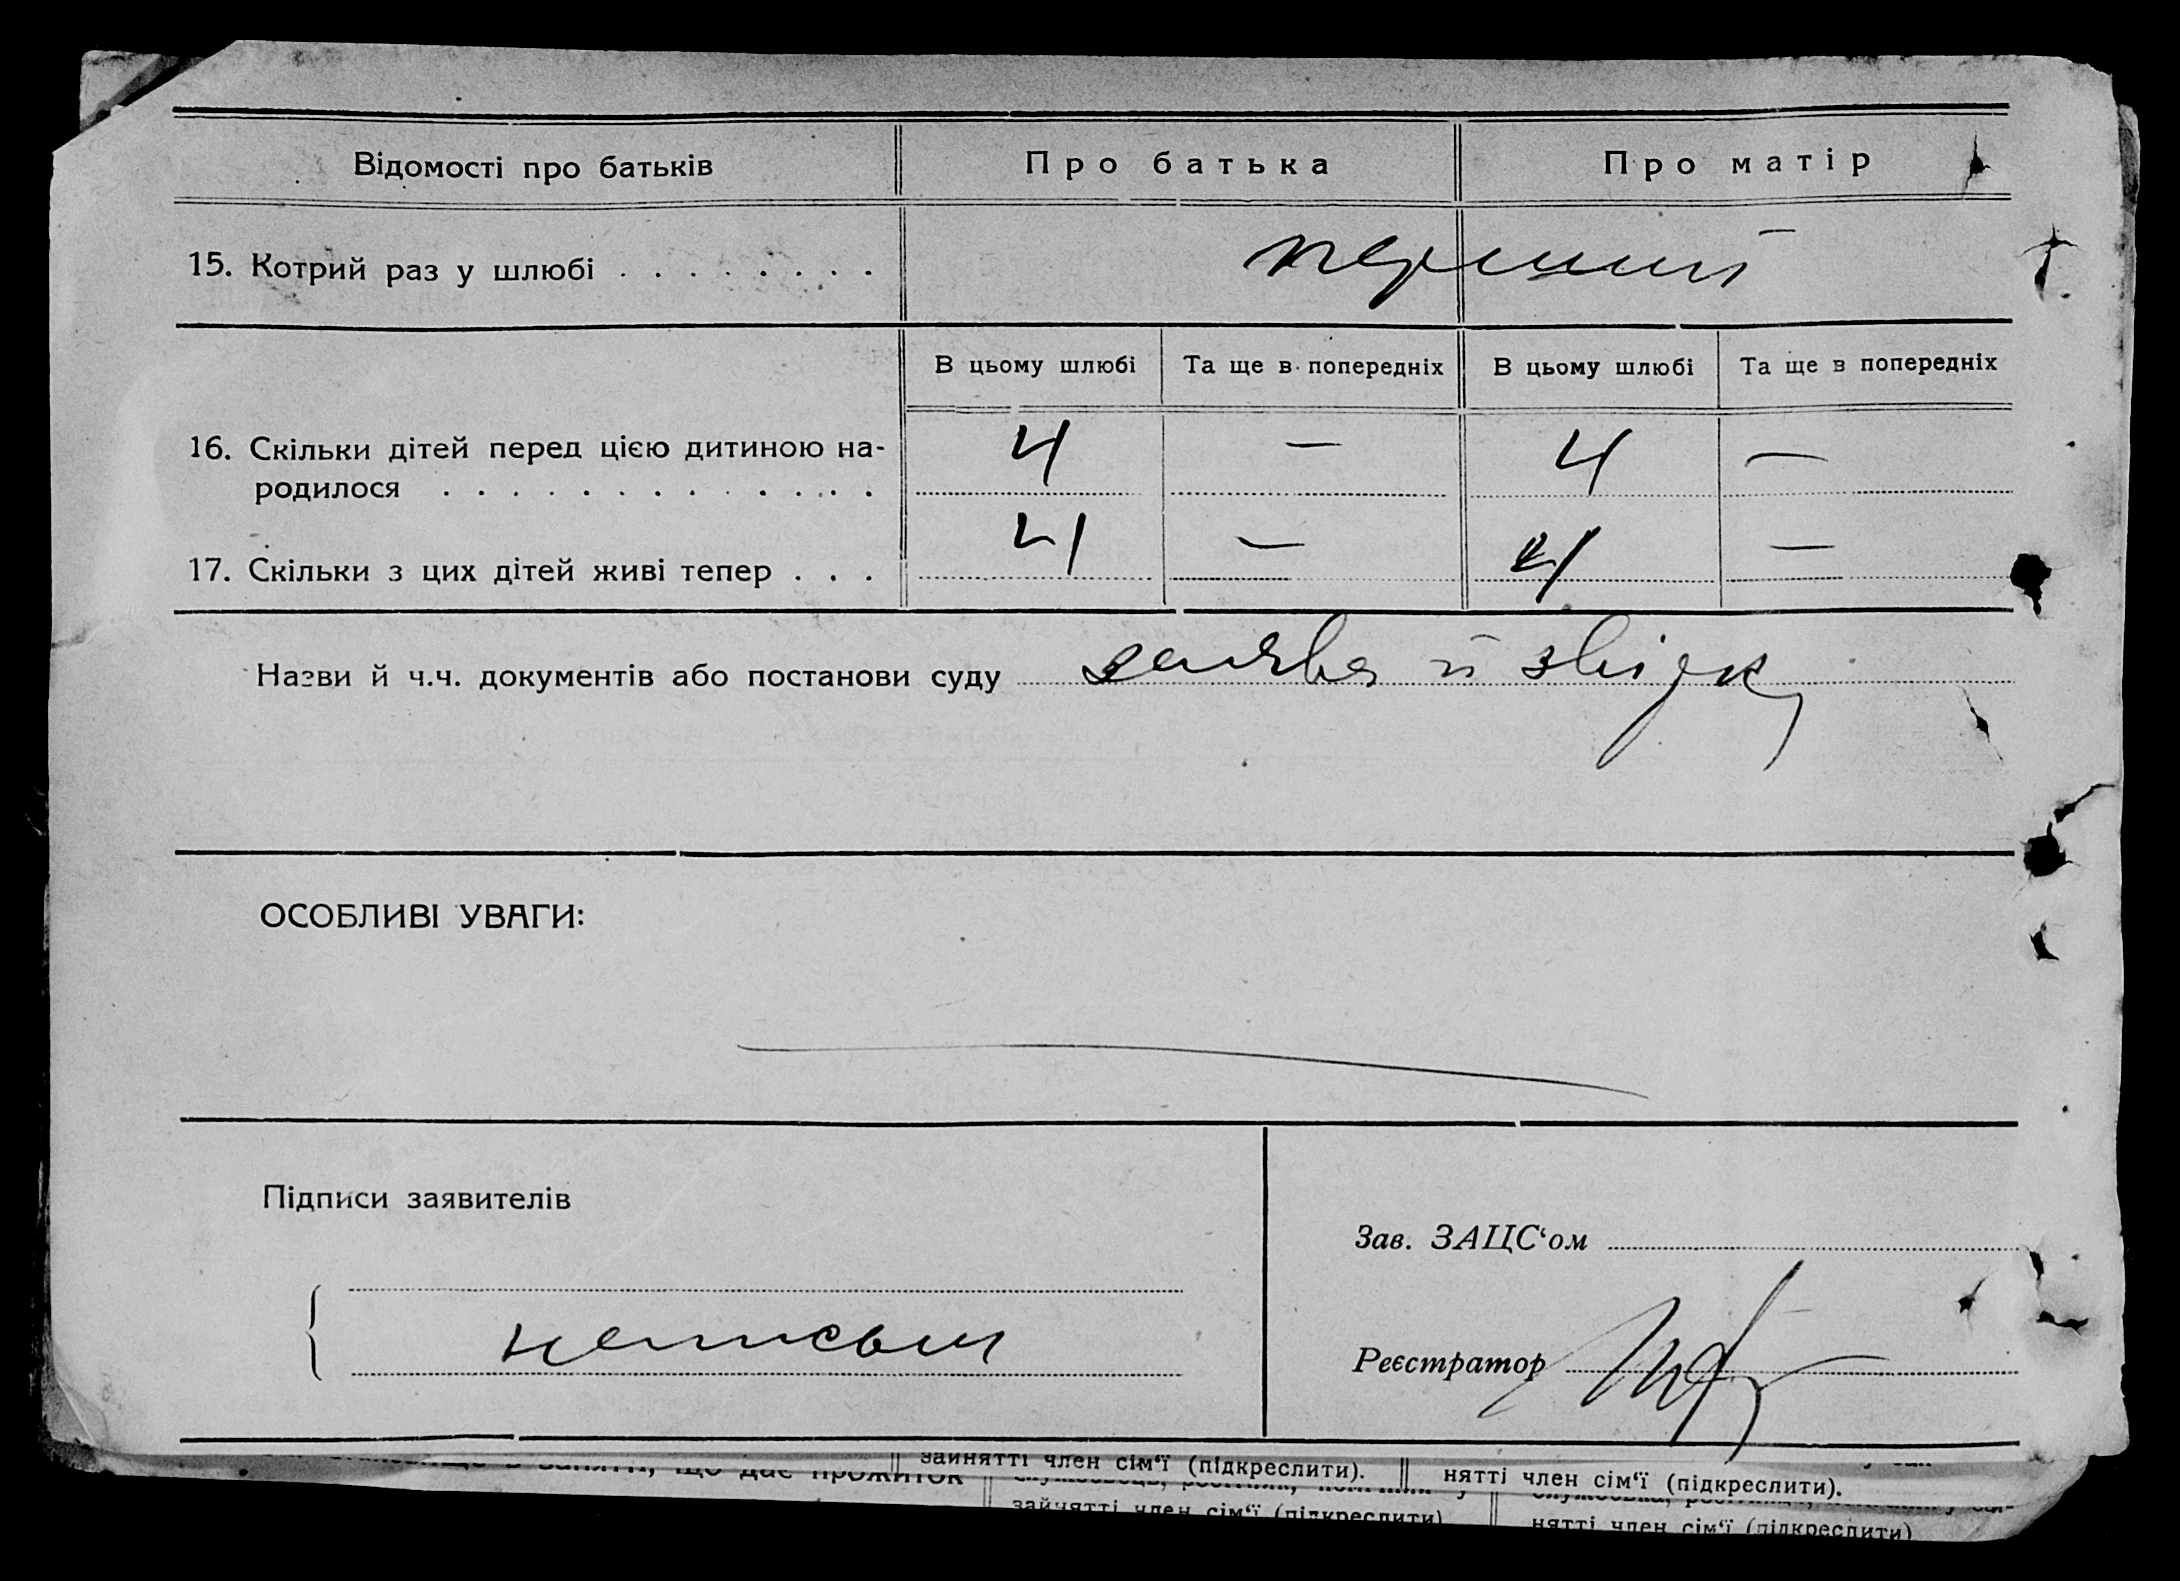 Відомості про батьків Про батька Про матір
15. Котрий раз у шлюбі . . . . . . . . перший
В цьому шлюбі Та ще в попередніх В цьому шлюбі Та ще в попередніх
16. Скільки дітей перед цією дитиною на-
родилося . . . . . . . . . . . . . 4 — 4 —
17. Скільки з цих дітей живі тепер . . . 4 — 4 —
Назви й ч.ч. документів або постанови суду заява й звідк
ОСОБЛИВІ УВАГИ:
Підписи заявителів
Зав. ЗАЦС‘ом
неписьм
Реєстратор
що дає прожиток зайнятті член сім‘ї (підкреслити). нятті член сім‘ї (підкреслити).
зайнятті член сім‘ї (підкреслити) нятті член сім‘ї (підкреслити)